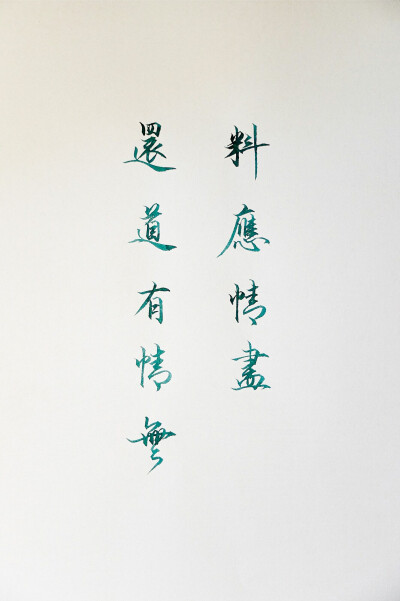 料應情盡
還道有情無